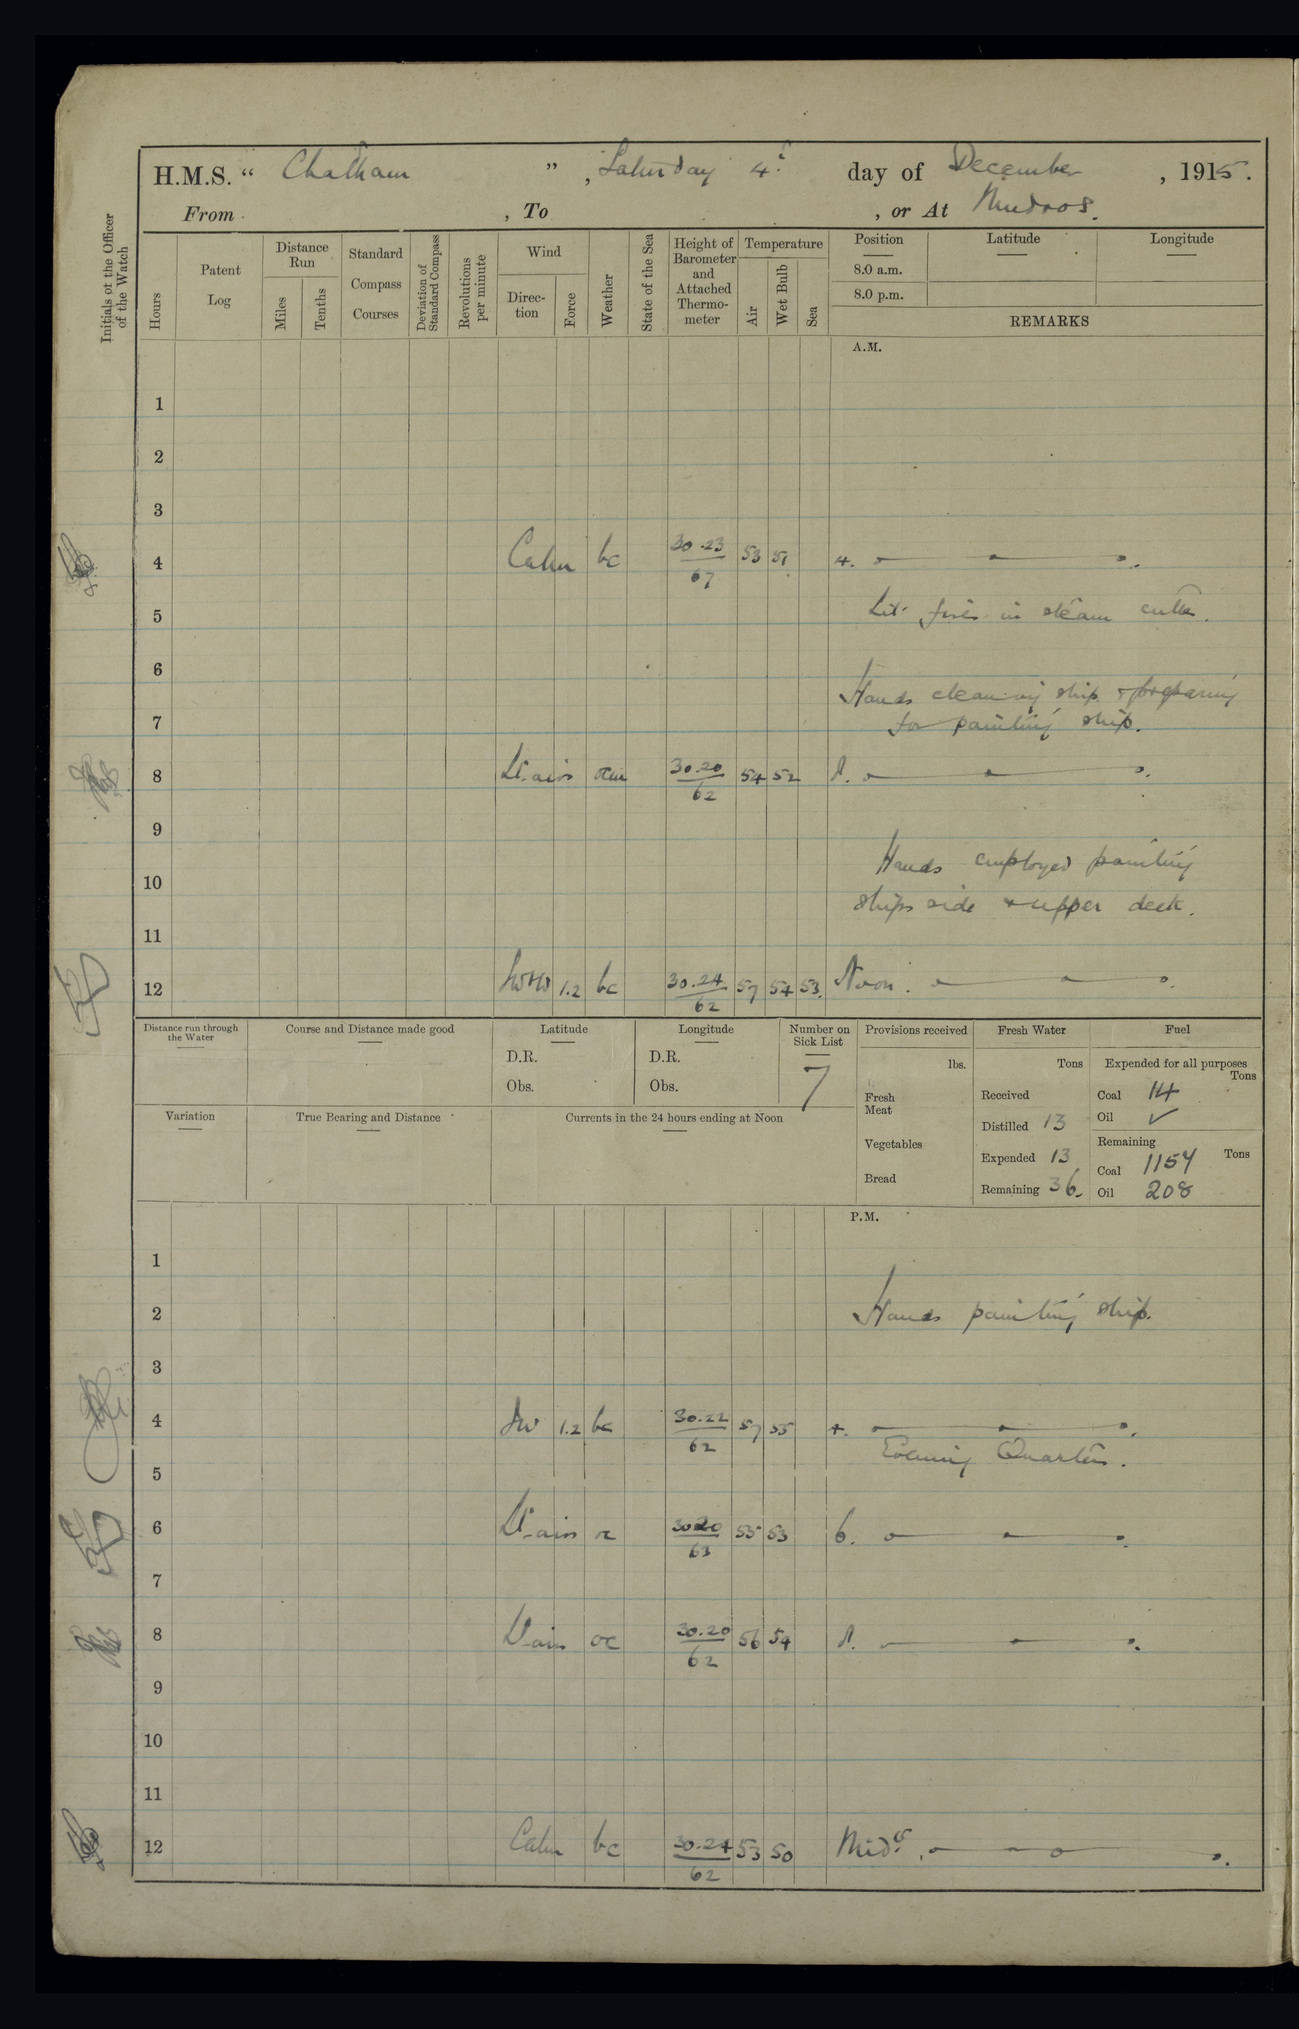 H.M.S. “ Chatham ” , Saturday 4th day of December , 1915.
From , To , or At Mudros.
Initials of the Officer of the Watch
Hours
Patent Log
Distance Run
Miles
Tenths
Standard Compass Courses
Deviation of Standard Compass
Revolutions per minute
Wind
Direction
Force
Weather
State of the Sea
Height of Barometer and Attached Thermometer
Temperature
Air
Wet Bulb
Sea
Position Latitude Longitude
8.0 a.m.
8.0 p.m.
REMARKS
A.M.
1
2
3
4 Calm bc 30.23/67 53 51 4.
5 Lit fires in steam cutter.
6
Hands cleaning ship & preparing
7 for painting ship.
8 Lt. airs ocm 30.20/62 54 52 8.
9
Hands employed painting
10
ships side & upper deck.
11
12 1.2 bc 30.24/62 57 54 53. Noon.
Distance run through the Water
Course and Distance made good
Latitude
D.R.
Obs.
Longitude
D.R.
Obs.
Number on Sick List
7
Provisions received
lbs.
Fresh Meat
Vegetables
Bread
Fresh Water
Tons
Received
Distilled 13
Expended 13
Remaining 36.
Fuel
Expended for all purposes
Tons
Coal 14
Oil ✓
Remaining
Tons
Coal 1154
Oil 208
Variation
True Bearing and Distance
Currents in the 24 hours ending at Noon
P.M.
1
2 Hands painting ship.
3
4 SW 1.2 bc 30.22/62 57 55 4.
Evening Quarters.
5
6 Lt. airs oc 30.20/63 55 53 6.
7
8 Lt. airs oc 30.20/62 56 54 8.
9
10
11
12 Calm bc 30.24/62 53 50 Midt.